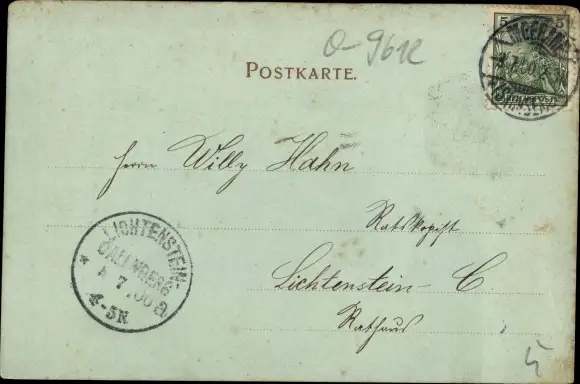 O-9612
POSTKARTE.
Herrn Willy Hahn
Ratskopist
Lichtenstein-C.
Rathaus
LICHTENSTEIN-
CALLNBERG
7 00
4-5N
5 5